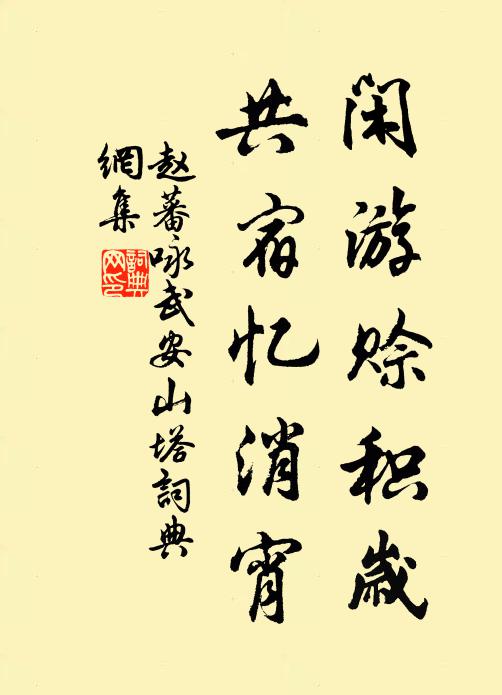 闲游赊积岁
共宿忆消宵
赵蕃咏武安山塔词典
網集
詞典网印